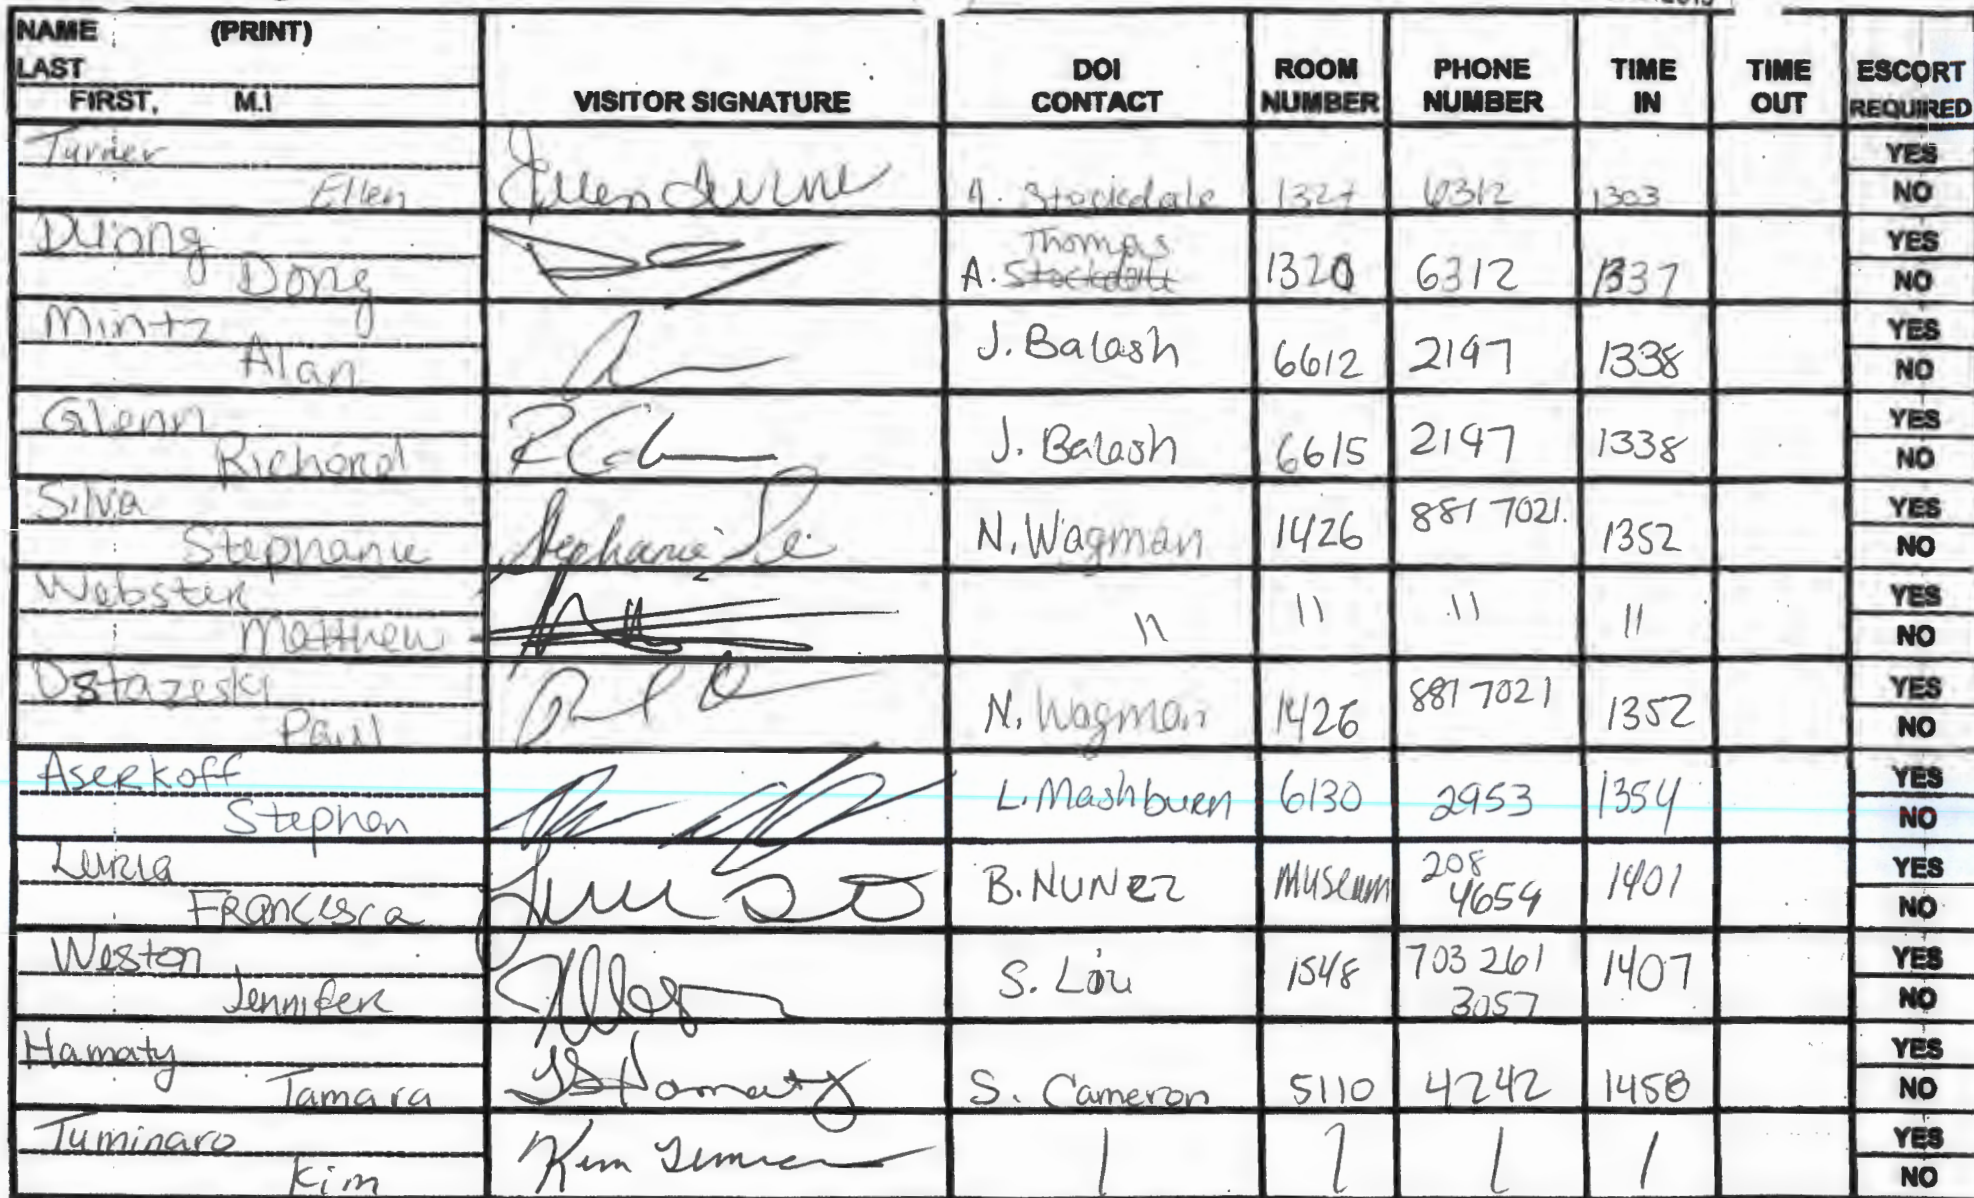 NAME (PRINT)
LAST
FIRST, M.I
VISITOR SIGNATURE
DOI CONTACT
ROOM NUMBER
PHONE NUMBER
TIME IN
TIME OUT
ESCORT REQUIRED
Turner
Ellen
Ellen
A. Stockdale 1327 6312 1303
YES
NO
Duong
Dong
Thomas
A. Stockdale 1320 6312 1337
YES
NO
Mintz
Alan
J. Balash 6612 2197 1338
YES
NO
Glenn
Richard
J. Balash 6615 2197 1338
YES
NO
Silva
Stephanie
Stephanie
N. Wagman 1426 881 7021. 1352
YES
NO
Webster
Matthew
" " " "
YES
NO
Ostazeski
Paul
N. Wagman 1426 881 7021 1352
YES
NO
Aserkoff
Stephen
L. Mashburn 6130 2953 1354
YES
NO
Luria
Francesca
B. Nunez Museum 208 4659 1401
YES
NO
Weston
Jennifer
S. Lou 1548 703 261 3057 1407
YES
NO
Hamaty
Tamara
Hamaty
S. Cameron 5110 4242 1458
YES
NO
Tuminaro
Kim
Kim
YES
NO